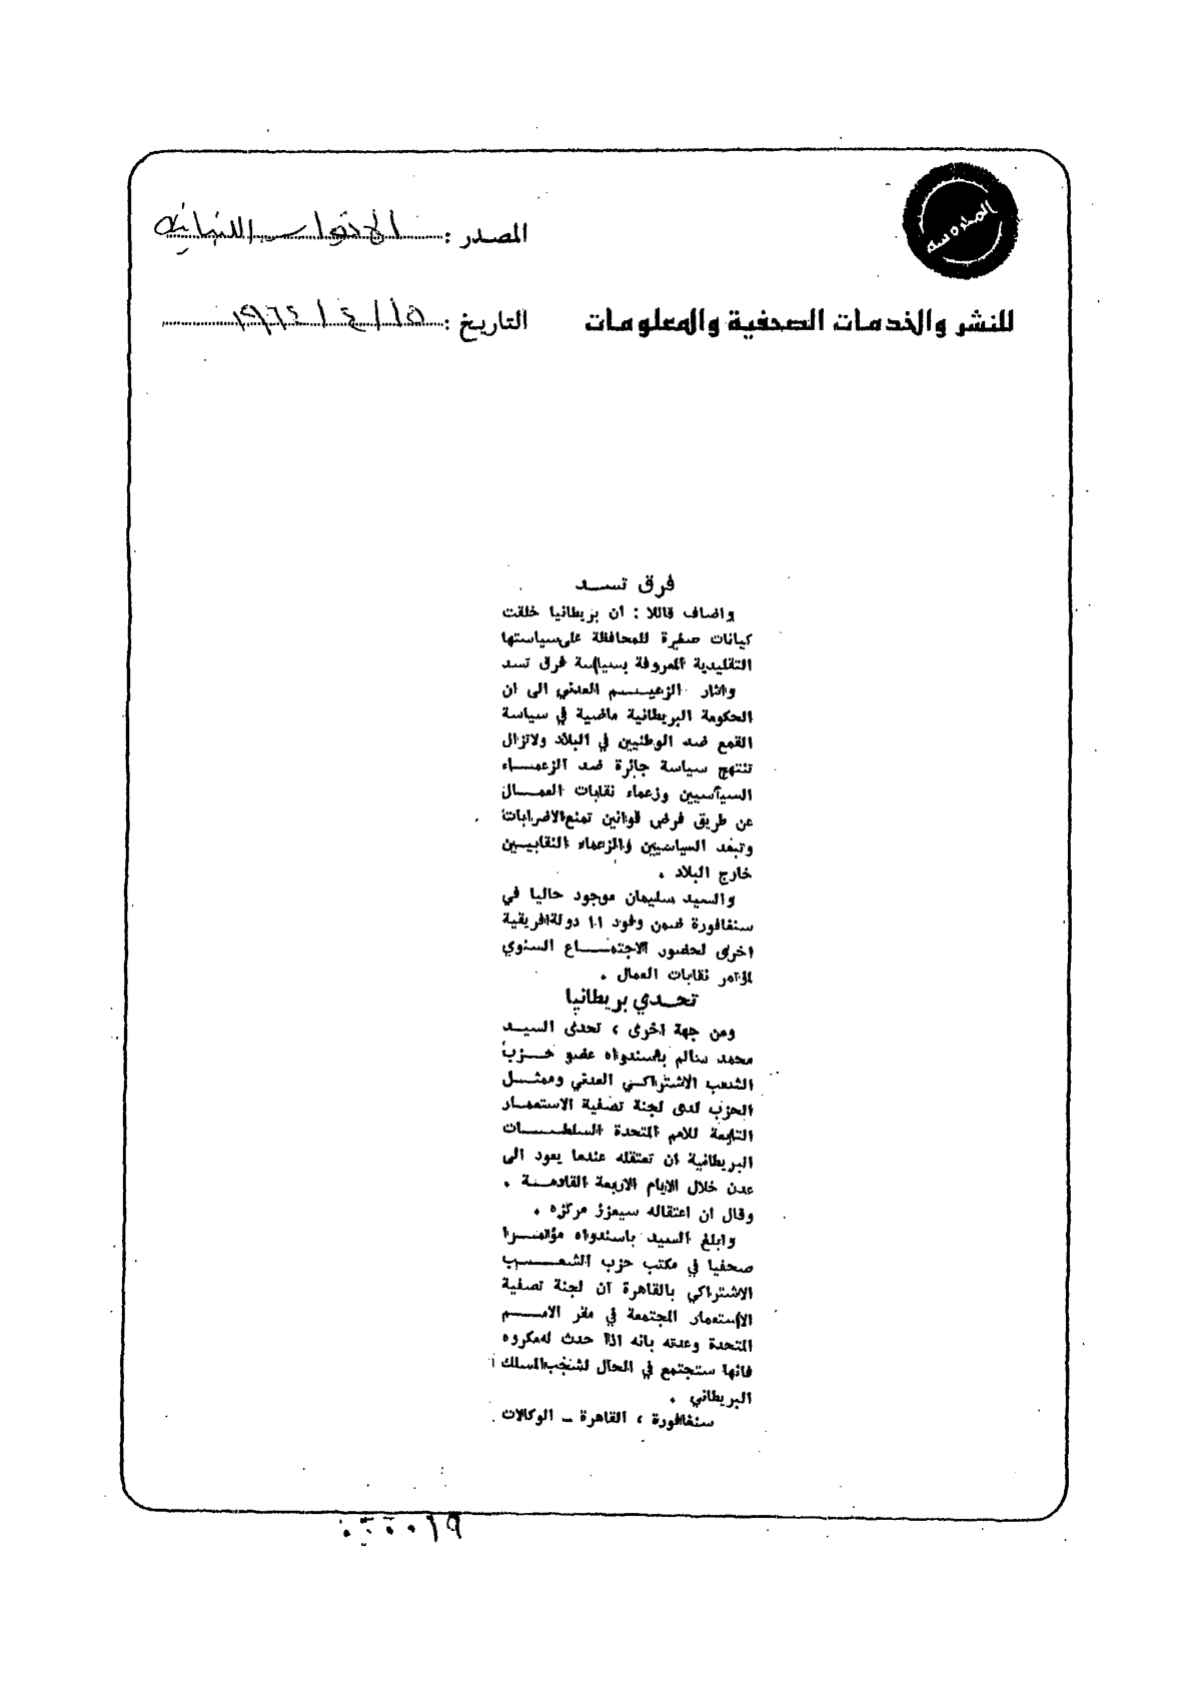 المصدر : الانوار اللبنانية
المدروسة
للنشر والخدمات الصحفية والمعلومات
التاريخ : ١٥ / ٤ / ١٩٦٤
فرق تسد
واضاف قائلا : ان بريطانيا خلقت
كيانات صغيرة للمحافظة على سياستها
التقليدية المعروفة بسياسة فرق تسد
واشار الزعيم العدني الى ان
الحكومة البريطانية ماضية في سياسة
القمع ضد الوطنيين في البلاد ولاتزال
تنتهج سياسة جائرة ضد الزعماء
السياسيين وزعماء نقابات العمال
عن طريق فرض قوانين تمنع الاضرابات
وتبعد السياسيين والزعماء النقابيين
خارج البلاد .
والسيد سليمان موجود حاليا في
سنغافورة ضمن وفود ١١ دولة افريقية
اخرى لحضور الاجتماع السنوي
لمؤتمر نقابات العمال .
تحدي بريطانيا
ومن جهة اخرى ، تحدى السيد
محمد سالم باسندواه عضو حزب
الشعب الاشتراكي العدني وممثل
الحزب لدى لجنة تصفية الاستعمار
التابعة للامم المتحدة السلطات
البريطانية ان تعتقله عندما يعود الى
عدن خلال الايام الاربعة القادمة .
وقال ان اعتقاله سيعزز مركزه .
وابلغ السيد باسندواه مؤتمرا
صحفيا في مكتب حزب الشعب
الاشتراكي بالقاهرة ان لجنة تصفية
الاستعمار المجتمعة في مقر الامم
المتحدة وعدته بانه اذا حدث له مكروه
فانها ستجتمع في الحال لشجب المسلك
البريطاني .
سنغافورة ، القاهرة - الوكالات